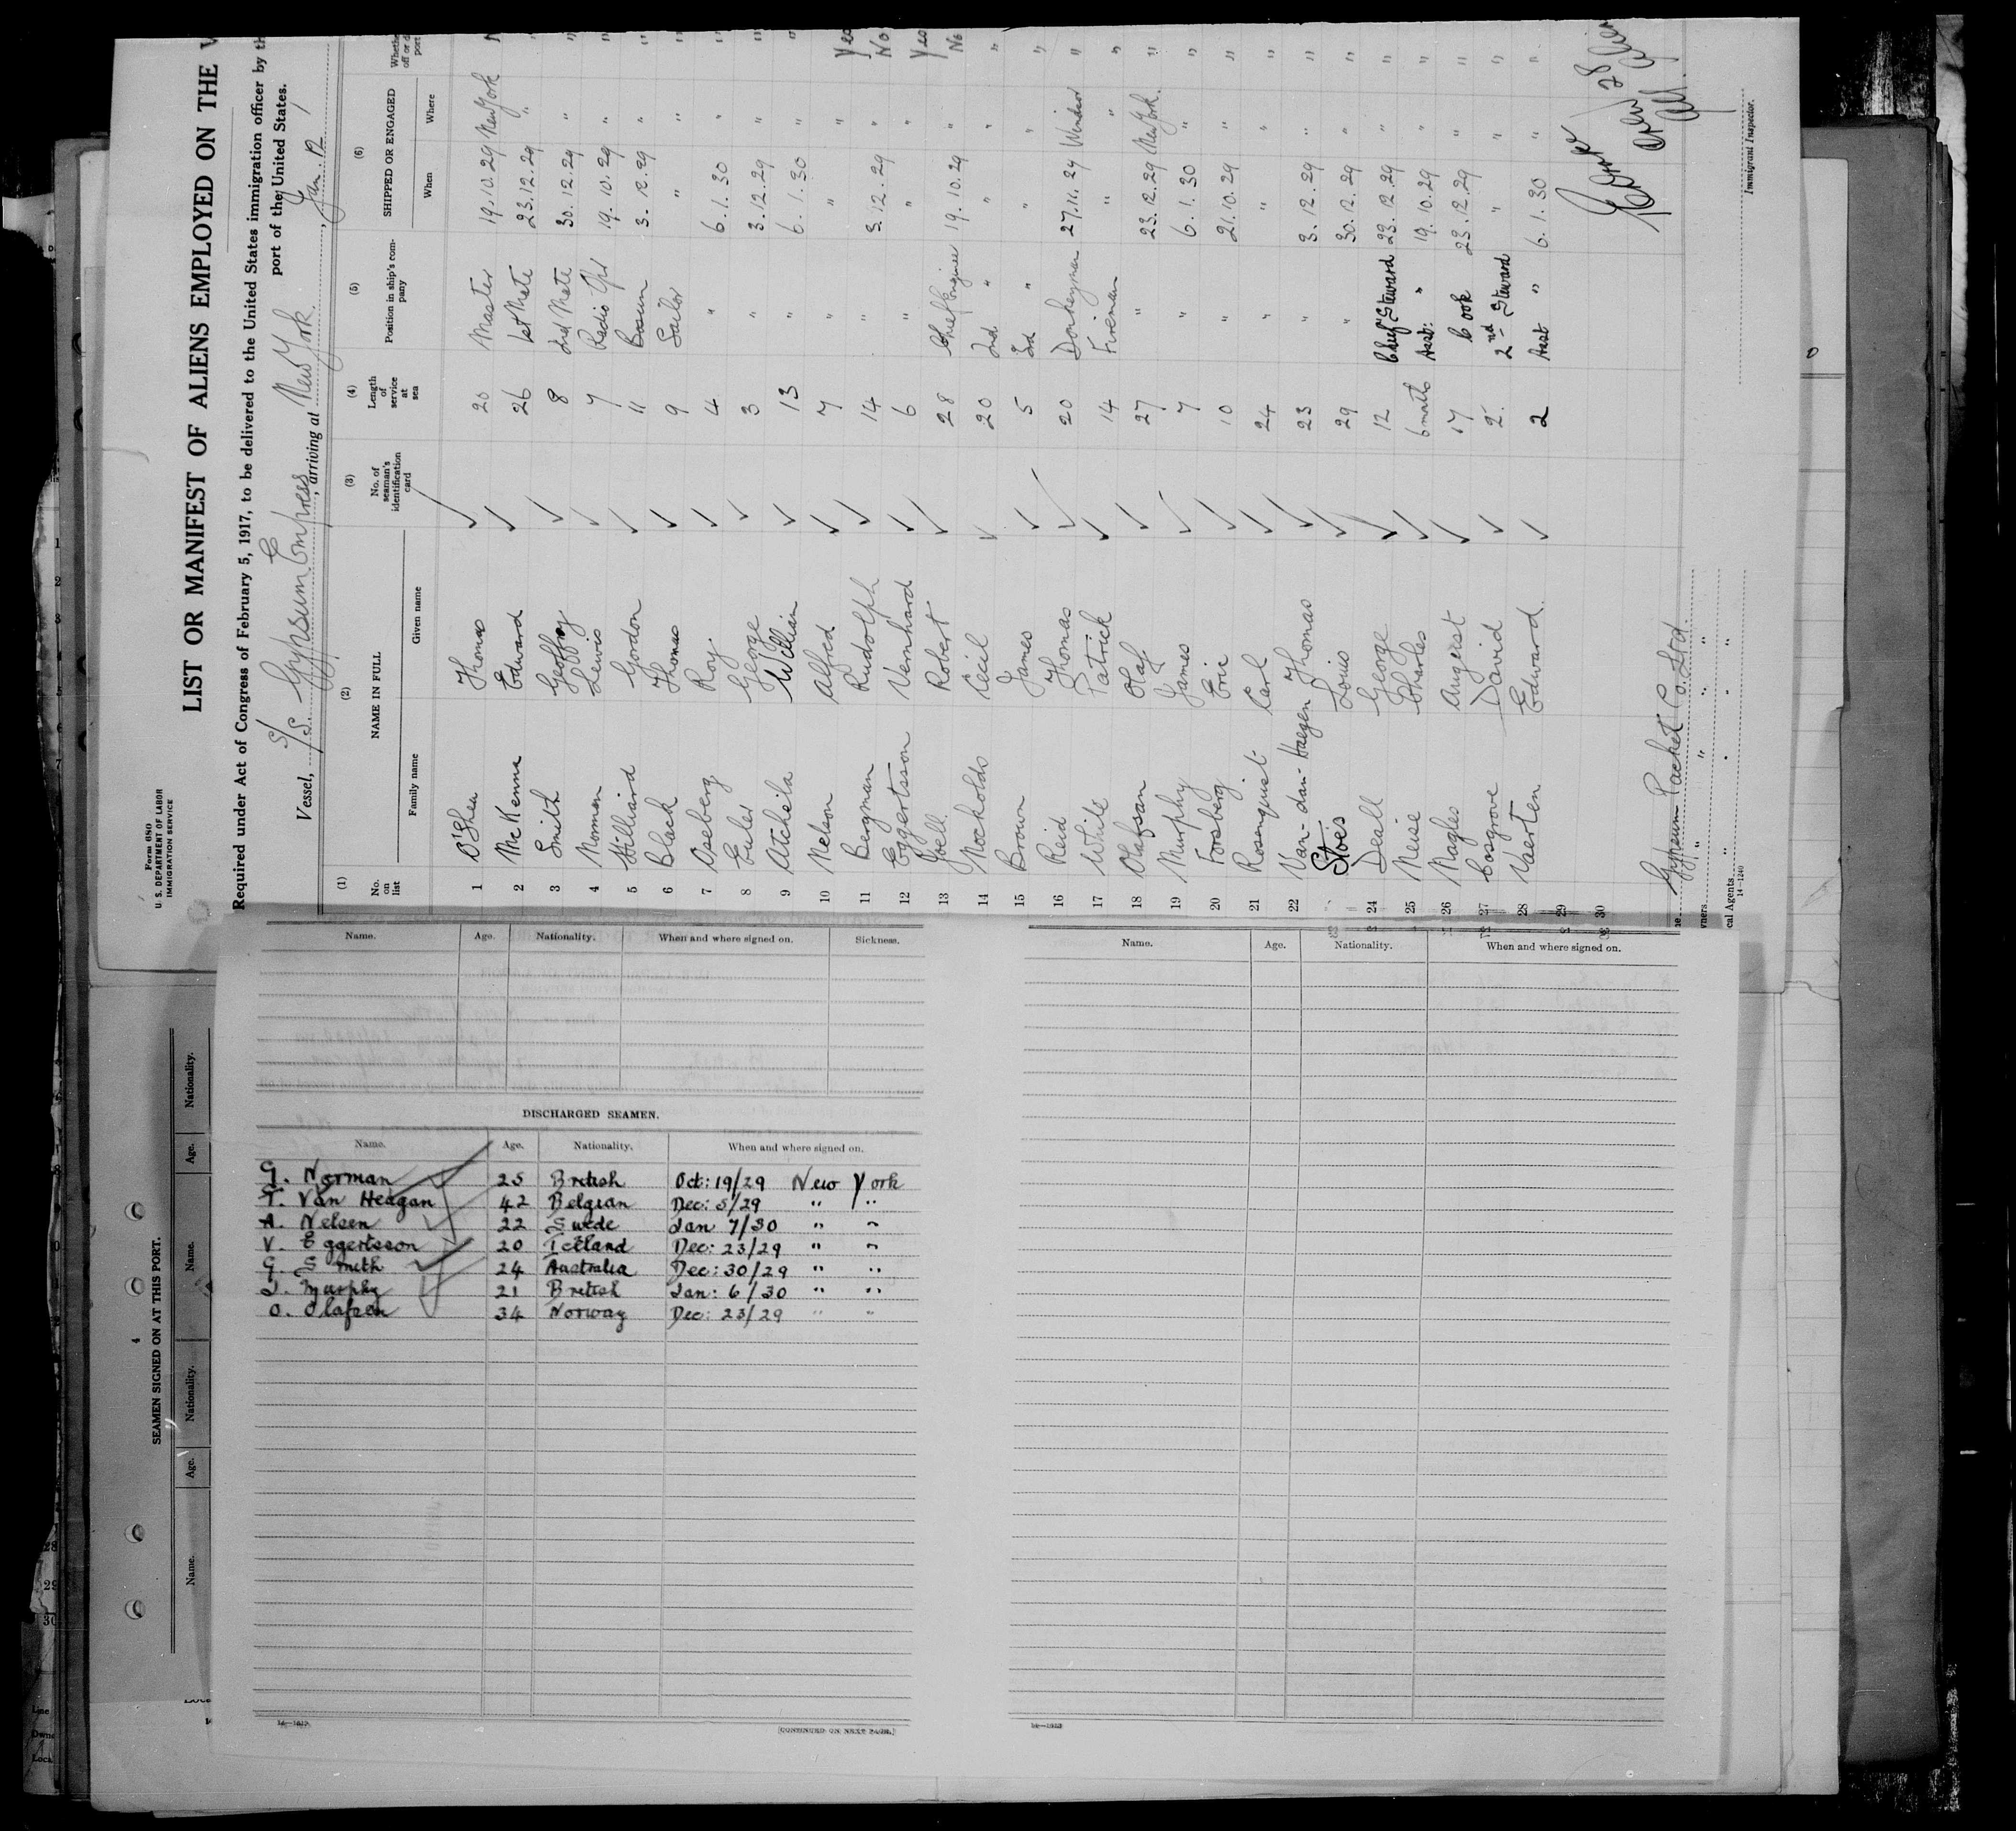 Form 680
U. S. DEPARTMENT OF LABOR
IMMIGRATION SERVICE
LIST OR MANIFEST OF ALIENS EMPLOYED ON THE
Required under Act of Congress of February 5, 1917, to be delivered to the United States immigration officer by th
port of the United States.
Vessel, S/S. Gypsum Empress, arriving at New York, Jan. 12
(1) (2) (3) (4) (5) (6)
No. on list NAME IN FULL No. of seaman's identification card Length of service at sea Position in ship's company SHIPPED OR ENGAGED
Family name Given name When Where
1 O'Shea Thomas 20 Master 19.10.29 New York
2 McKenna Edward 26 1st Mate 23.12.29 "
3 Smith Geoffrey 8 2nd Mate 30.12.29 "
4 Norman Lewis 7 Radio Opr 19.10.29 "
5 Hilliard Gordon 11 Bosun 3.12.29 "
6 Black Thomas 9 Sailor " "
7 Oseberg Roy 4 " 6.1.30 "
8 Euler George 3 " 3.12.29 "
9 Atcheila William 13 " 6.1.30 "
10 Nelson Alfred 7 " " " Yes
11 Bergman Rudolph 14 " 3.12.29 " No
12 Eggertsson Vernhard 6 " " " Yes
13 Joell Robert 28 Chief Engineer 19.10.29 " No
14 Nockolds Cecil 20 2nd " " " "
15 Brown James 5 3rd " " " "
16 Reid Thomas 20 Donkeyman 27.11.29 Windsor "
17 White Patrick 14 Fireman " " "
18 Olafson Olaf 27 " 23.12.29 New York "
19 Murphy James 7 " 6.1.30 " "
20 Forsberg Eric 10 " 21.10.29 " "
21 Rosenquist Carl 24 " " " "
22 Van-dan-Haegen Thomas 23 " 3.12.29 " "
Stoes Louis 29 " 30.12.29 " "
24 Deall George 12 Chief Steward 23.12.29 " "
25 Meise Charles 6 mnths Asst: " 19.10.29 " "
26 Nagles August 17 Cook 23.12.29 " "
27 Cosgrove David 2 2nd Steward " " "
28 Vaerten Edward 2 Asst " 6.1.30 " "
29
30
Gypsum Packet Co. Ltd.
Immigrant Inspector.
cal Agents
14-1240
SEAMEN SIGNED ON AT THIS PORT.
Name. Age. Nationality. Name. Age. Nationality.
Name. Age. Nationality. When and where signed on. Sickness.
DISCHARGED SEAMEN.
Name. Age. Nationality. When and where signed on.
G. Norman 25 British Oct: 19/29 New York
T. Van Heagan 42 Belgian Dec: 5/29 " "
A. Nelsen 22 Swede Jan 7/30 " "
V. Eggertsson 20 Iceland Dec: 23/29 " "
G. Smith 24 Australia Dec: 30/29 " "
J. Murphy 21 British Jan: 6/30 " "
O. Olafsen 34 Norway Dec: 23/29 " "
[CONTINUED ON NEXT PAGE.]
Name. Age. Nationality. When and where signed on.